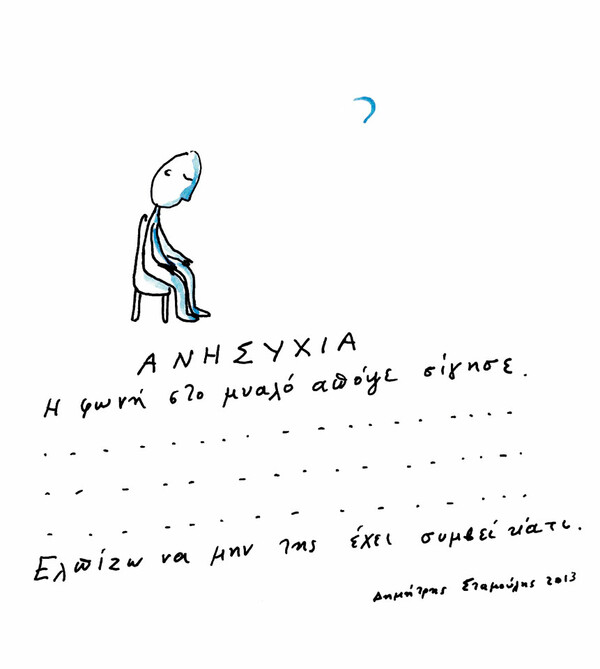 ΑΝΗΣΥΧΙΑ
Η φωνή στο μυαλό απόψε σίγησε.
. . - . . . . . - . . . . . . . . .
. - . . . . . . . . . . . . . - .
. . . . . . . . . . . . . . . .
Ελπίζω να μην της έχει συμβεί κάτι.
Δημήτρης Σταμούλης 2013